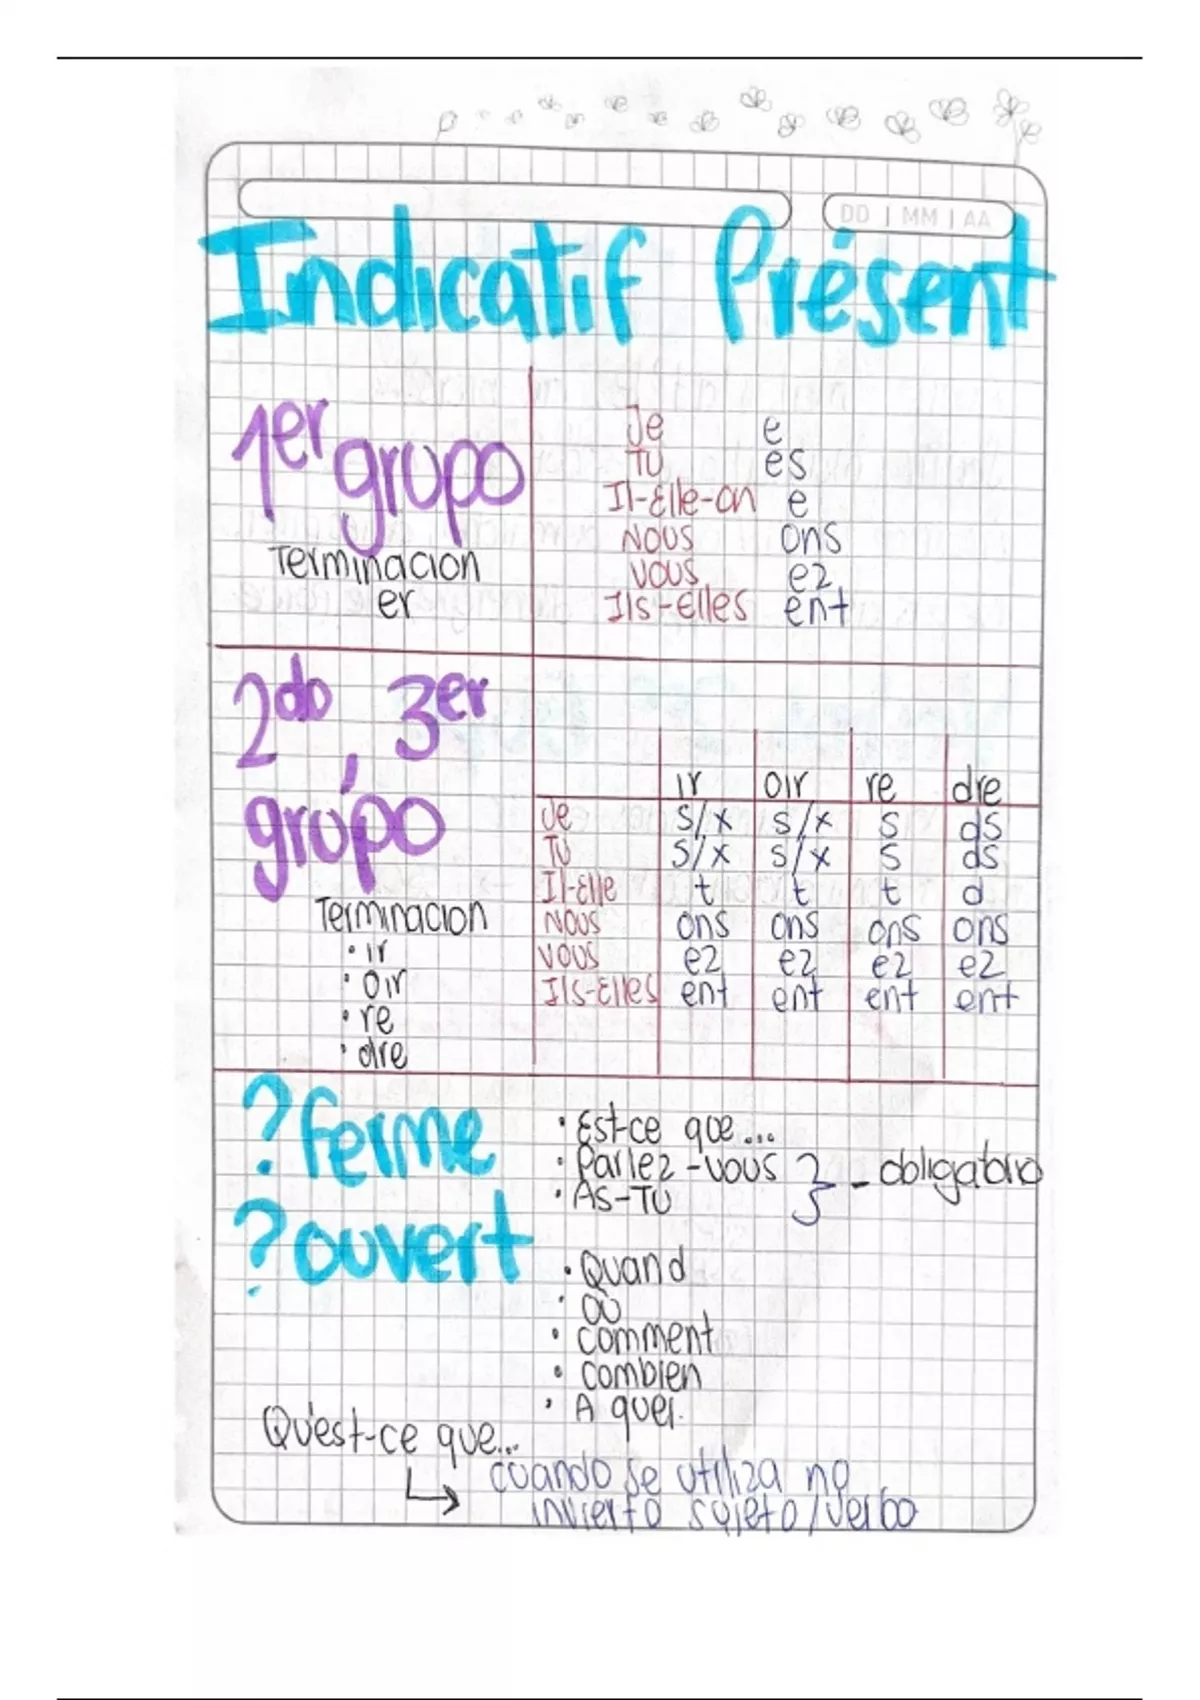 DD | MM | AA
Indicatif Présent
1er grupo
Terminacion
er
Je e
Tu es
Il-Elle-on e
Nous ons
Vous ez
Ils-Elles ent
2do, 3er
grupo
Terminacion
• ir
• oir
• re
• dre
ir oir re dre
Je s/x s/x s ds
Tu s/x s/x s ds
Il-Elle t t t d
Nous ons ons ons ons
Vous ez ez ez ez
Ils-Elles ent ent ent ent
? ferme
• Est-ce que...
• Parlez-vous
• As-Tu
} - obligatorio
? ouvert
• Quand
• Où
• comment
• combien
• A quel.
Qu'est-ce que...
↳ cuando se utiliza no
invierto sujeto/verbo